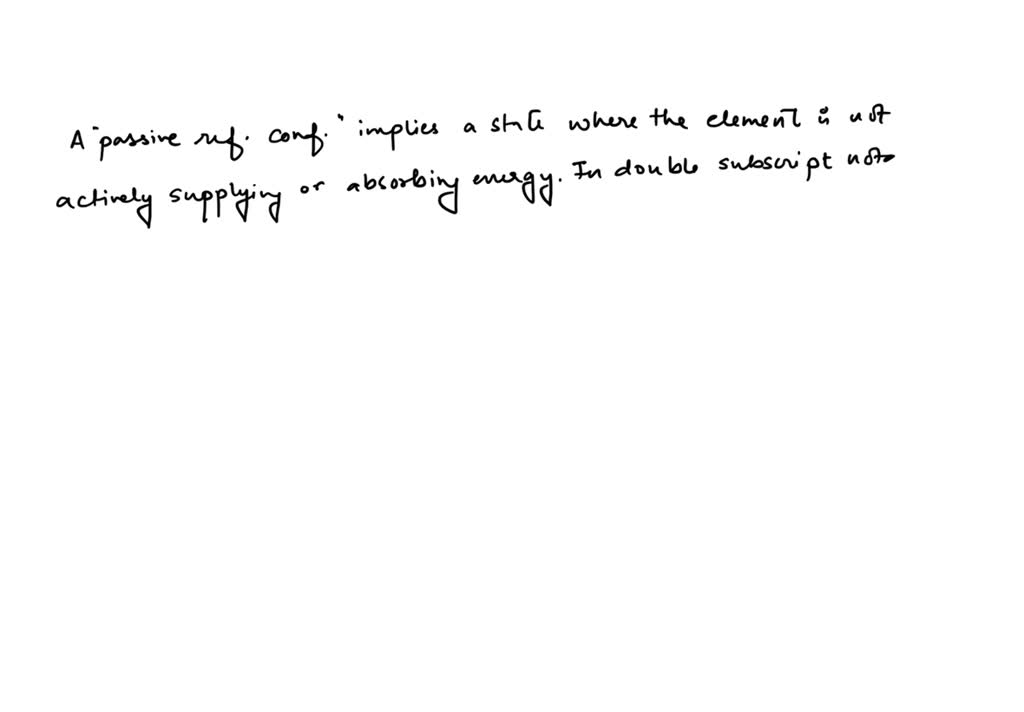 A "passive ref. conf." implies a state where the element is not
actively supplying or absorbing energy. In double subscript not